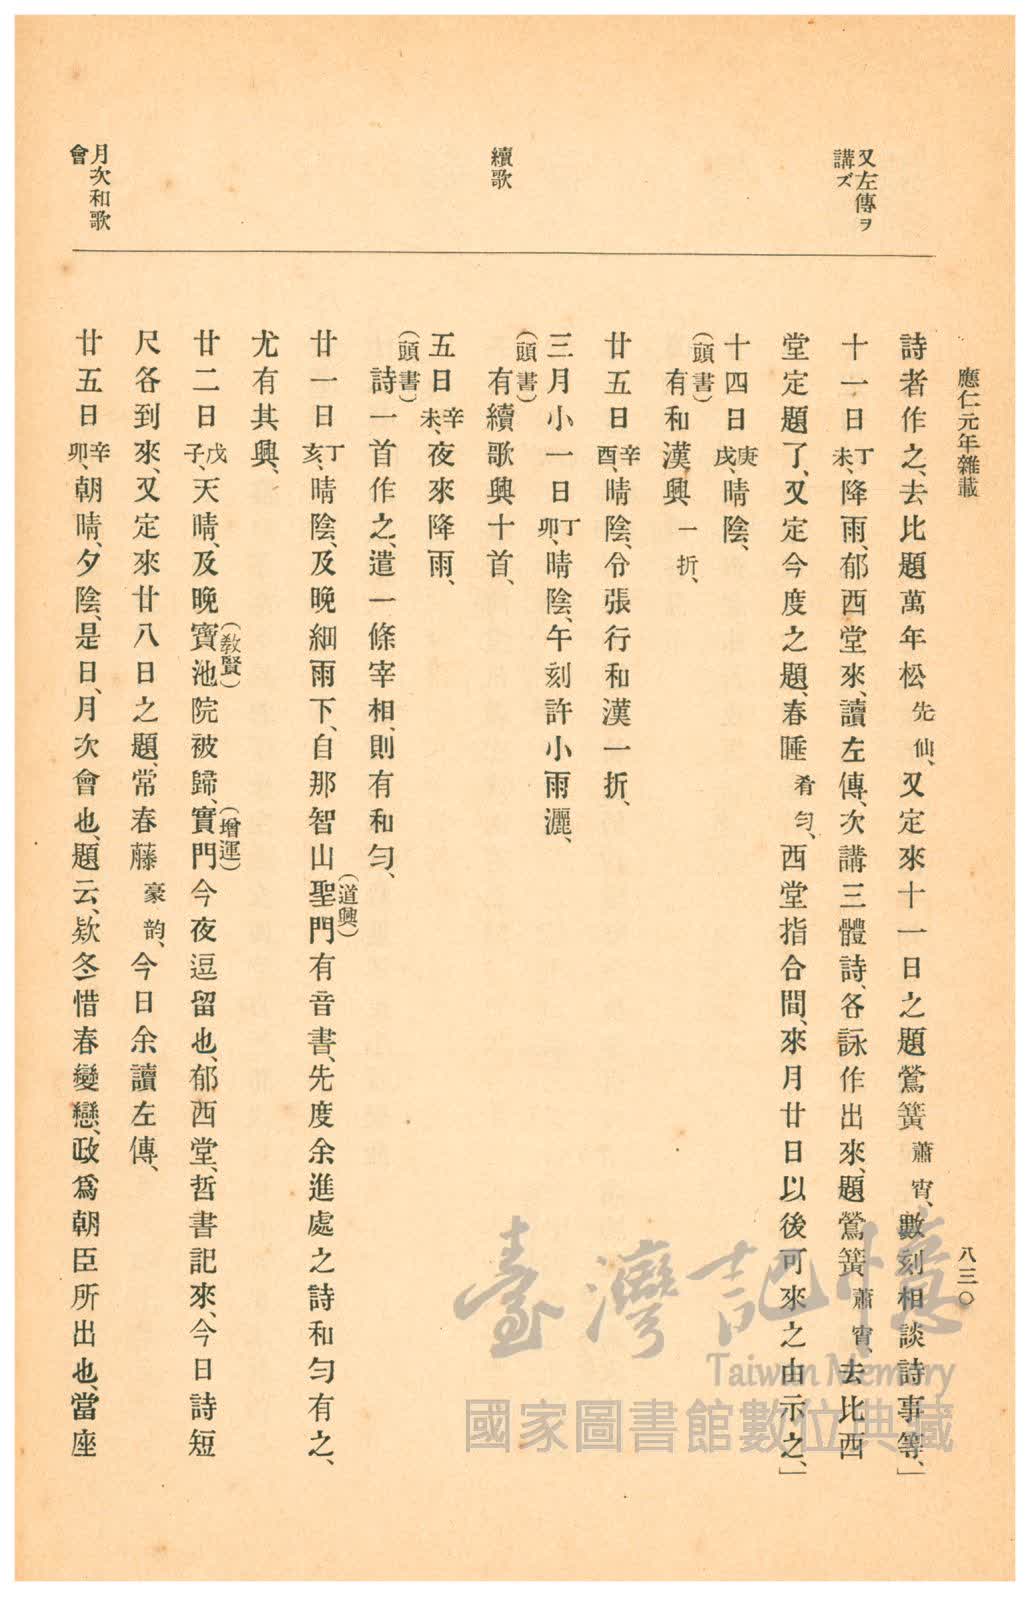 應仁元年雜載
八三〇
又左傳ヲ
講ズ
續歌
月次和歌
會
詩者作之、去比題萬年松先仙、又定來十一日之題鶯簧蕭宵、數刻相談詩事等、」
十一日丁未、降雨、郁西堂來、讀左傳、次講三體詩、各詠作出來、題鶯簧蕭宵、去比西
堂定題了、又定今度之題、春睡肴勻、西堂指合間、來月廿日以後可來之由示之、」
十四日庚戌、晴陰、
(頭書)
有和漢興一折、
廿五日辛酉、晴陰、令張行和漢一折、
三月小一日丁卯、晴陰、午刻許小雨灑、
(頭書)
有續歌興十首、
五日辛未、夜來降雨、
(頭書)
詩一首作之、遣一條宰相、則有和勻、
廿一日丁亥、晴陰、及晚細雨下、自那智山聖門(道興)有音書、先度余進處之詩和勻有之、
尤有其興、
廿二日戊子、天晴、及晚寶池院(教賢)被歸、實門(增運)今夜逗留也、郁西堂、哲書記來、今日詩短
尺各到來、又定來廿八日之題、常春藤豪韵、今日余讀左傳、
廿五日辛卯、朝晴、夕陰、是日、月次會也、題云、欵冬、惜春變戀、政爲朝臣所出也、當座
臺灣記憶
Taiwan Memory
國家圖書館數位典藏